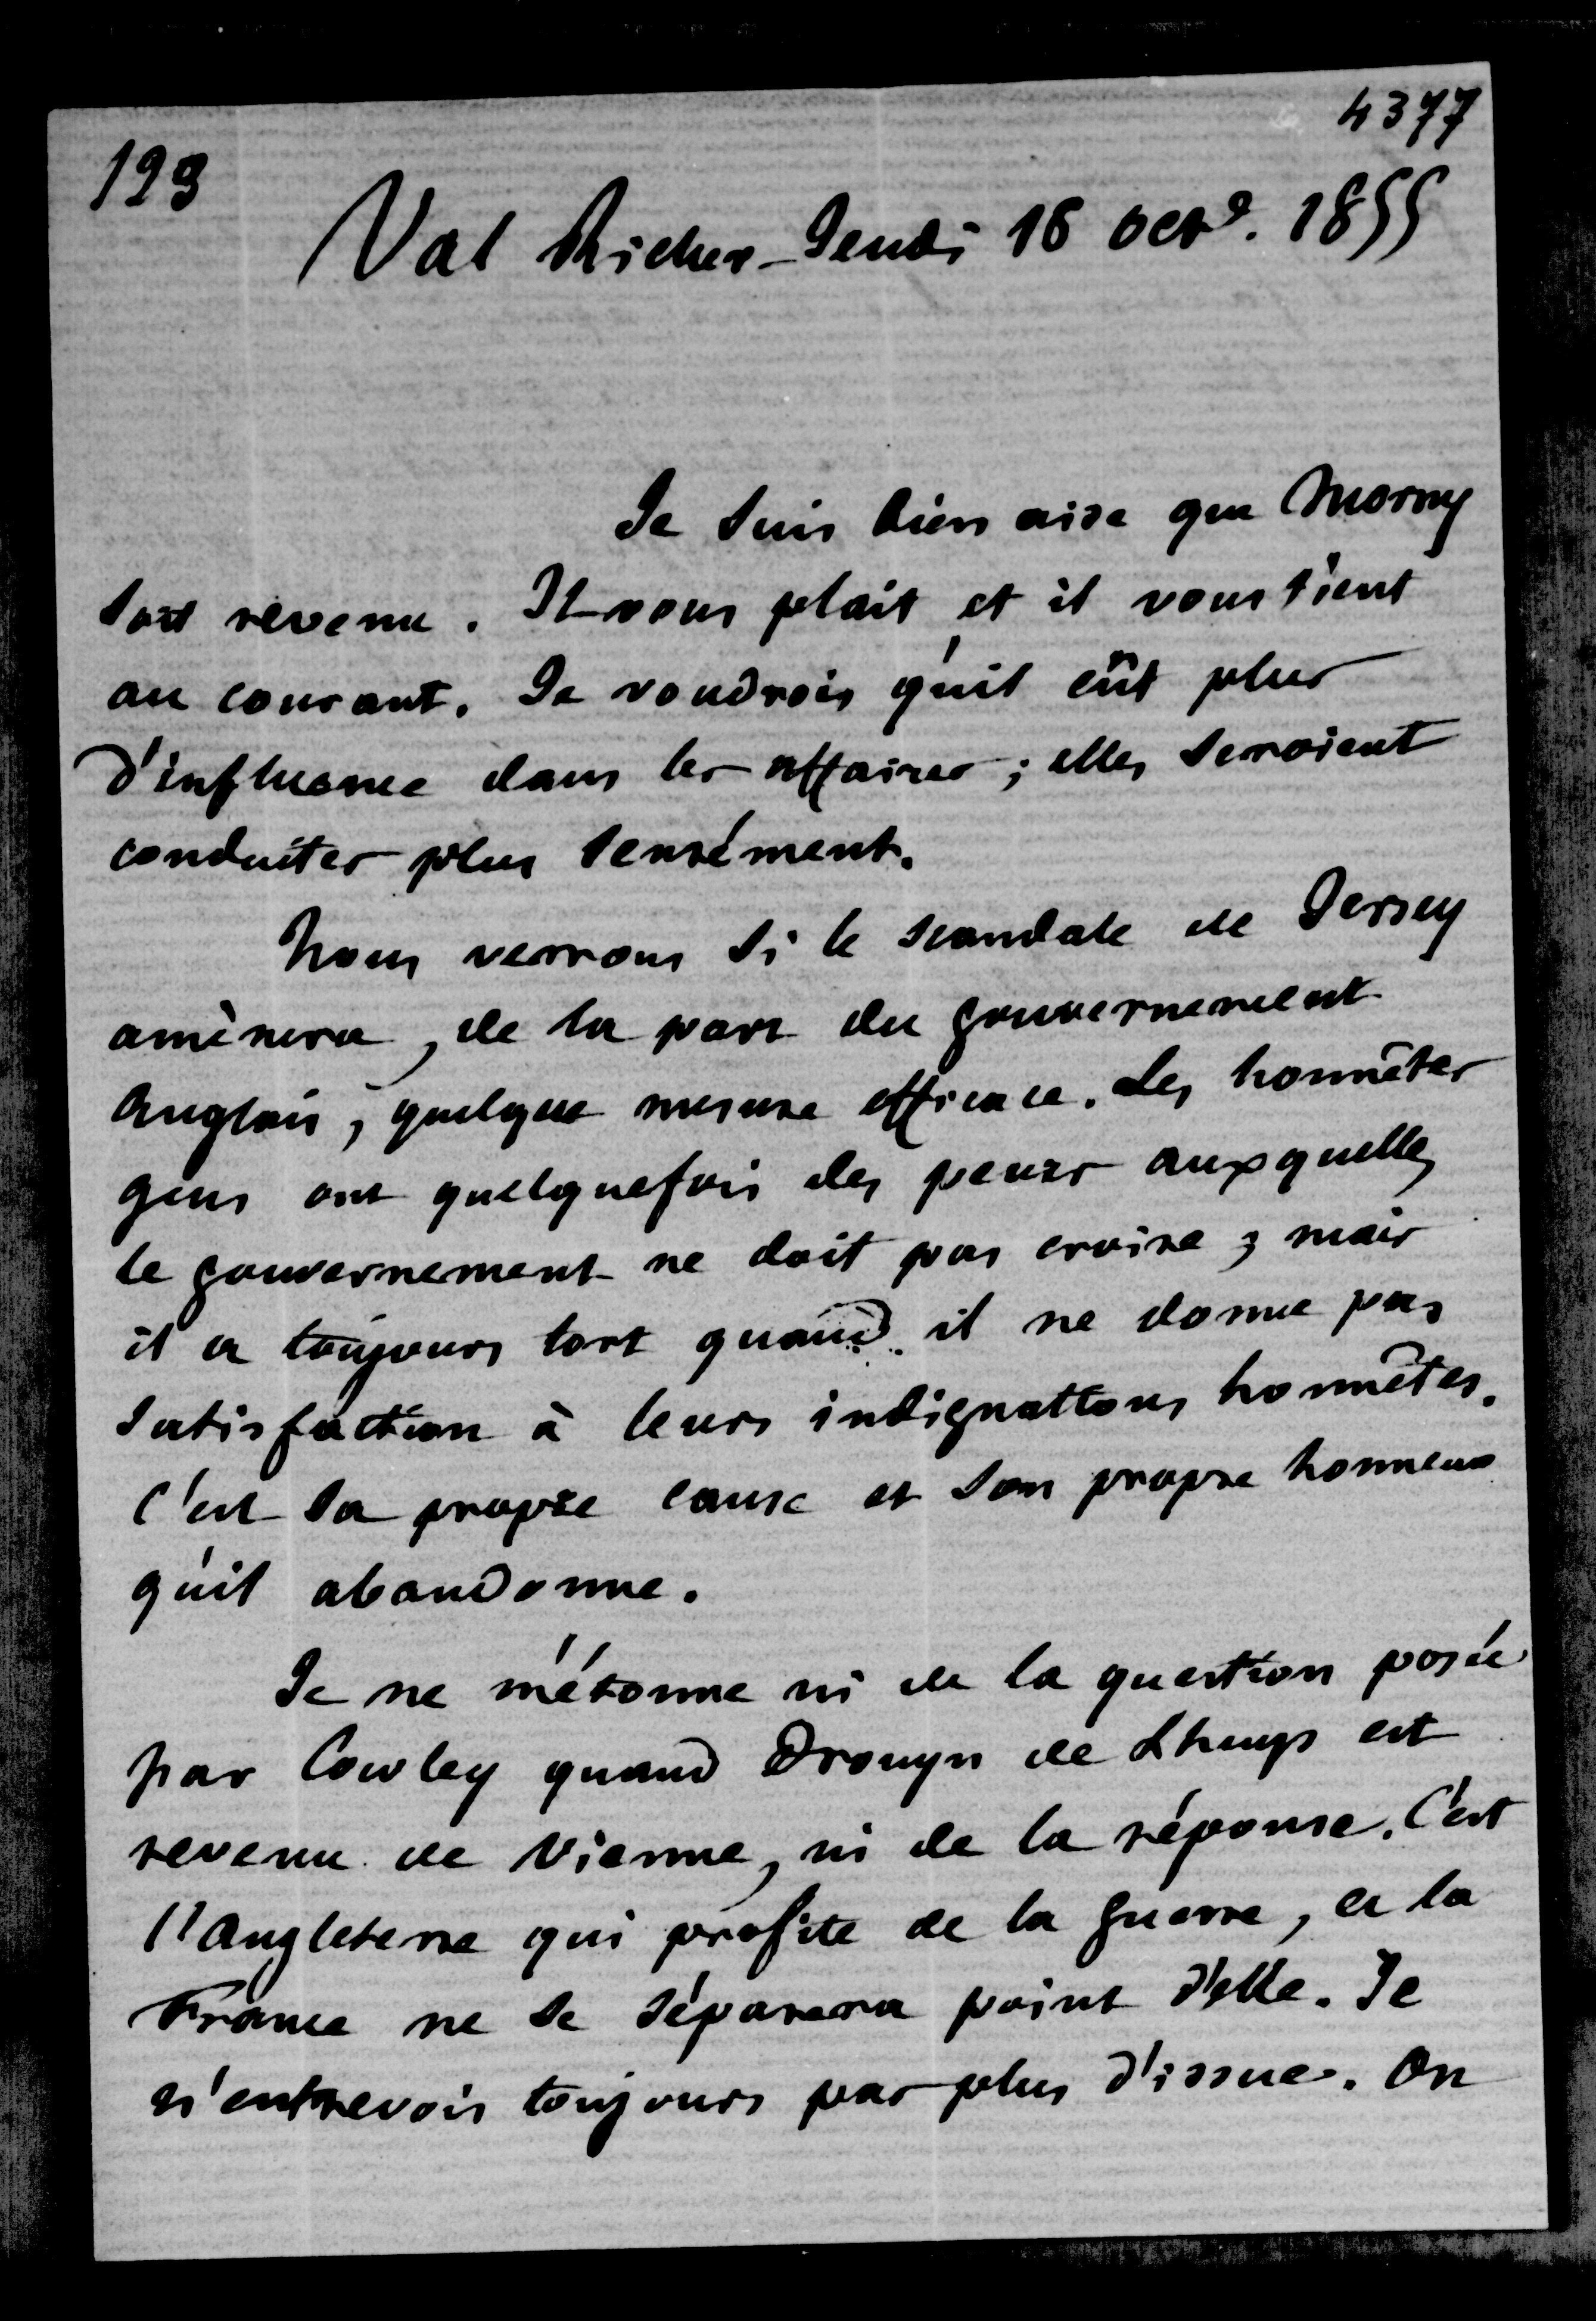 4377
193
Val Richer - Jeudi 18 octe. 1855
Je suis bien aise que Morny
soit revenu. Il vous plait et il vous tient
au courant. Je voudrois qu'il eût plus
d'influence dans les affaires ; elles seroient
conduites plus sensément.
Nous verrons si le scandale de Jersey
amènera, de la part du gouvernement
Anglais, quelque mesure efficace. Les honnêtes
gens ont quelquefois des peurs auxquelles
le gouvernement ne doit pas croire ; mais
il a toujours tort quand il ne donne pas
satisfaction à leurs indignations honnêtes.
C'est sa propre cause et son propre honneur
qu'il abandonne.
Je ne m'étonne ni de la question posée
par Cowley quand Drouyn de Lhuys est
revenu de Vienne, ni de la réponse. C'est
l'Angleterre qui profite de la guerre, et la
France ne se séparera point d'elle. Je
n'entrevois toujours pas plus d'issue. On